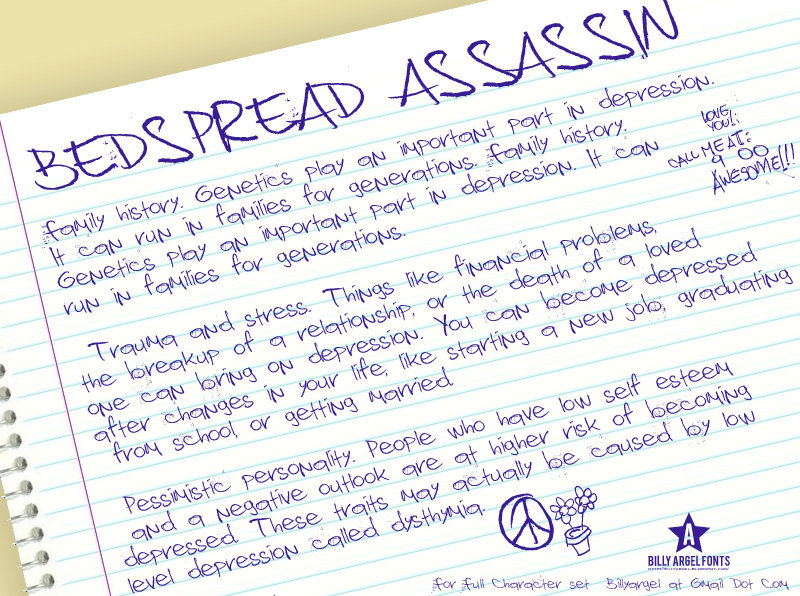 BEDSPREAD ASSASSIN
Family history. Genetics play an important part in depression.
It can run in families for generations. Family history.
Genetics play an important part in depression. It can
run in families for generations.
LOVE
YOU!.
CALL ME AT:
9 00
AWESOME!!!
Trauma and stress. Things like financial problems,
the breakup of a relationship, or the death of a loved
one can bring on depression. You can become depressed
after changes in your life, like starting a new job, graduating
from school, or getting married.
Pessimistic personality. People who have low self esteem
and a negative outlook are at higher risk of becoming
depressed. These traits may actually be caused by low
level depression called dysthymia.
A
BILLY ARGEL FONTS
For Full Character set Billyargel at Gmail Dot Com